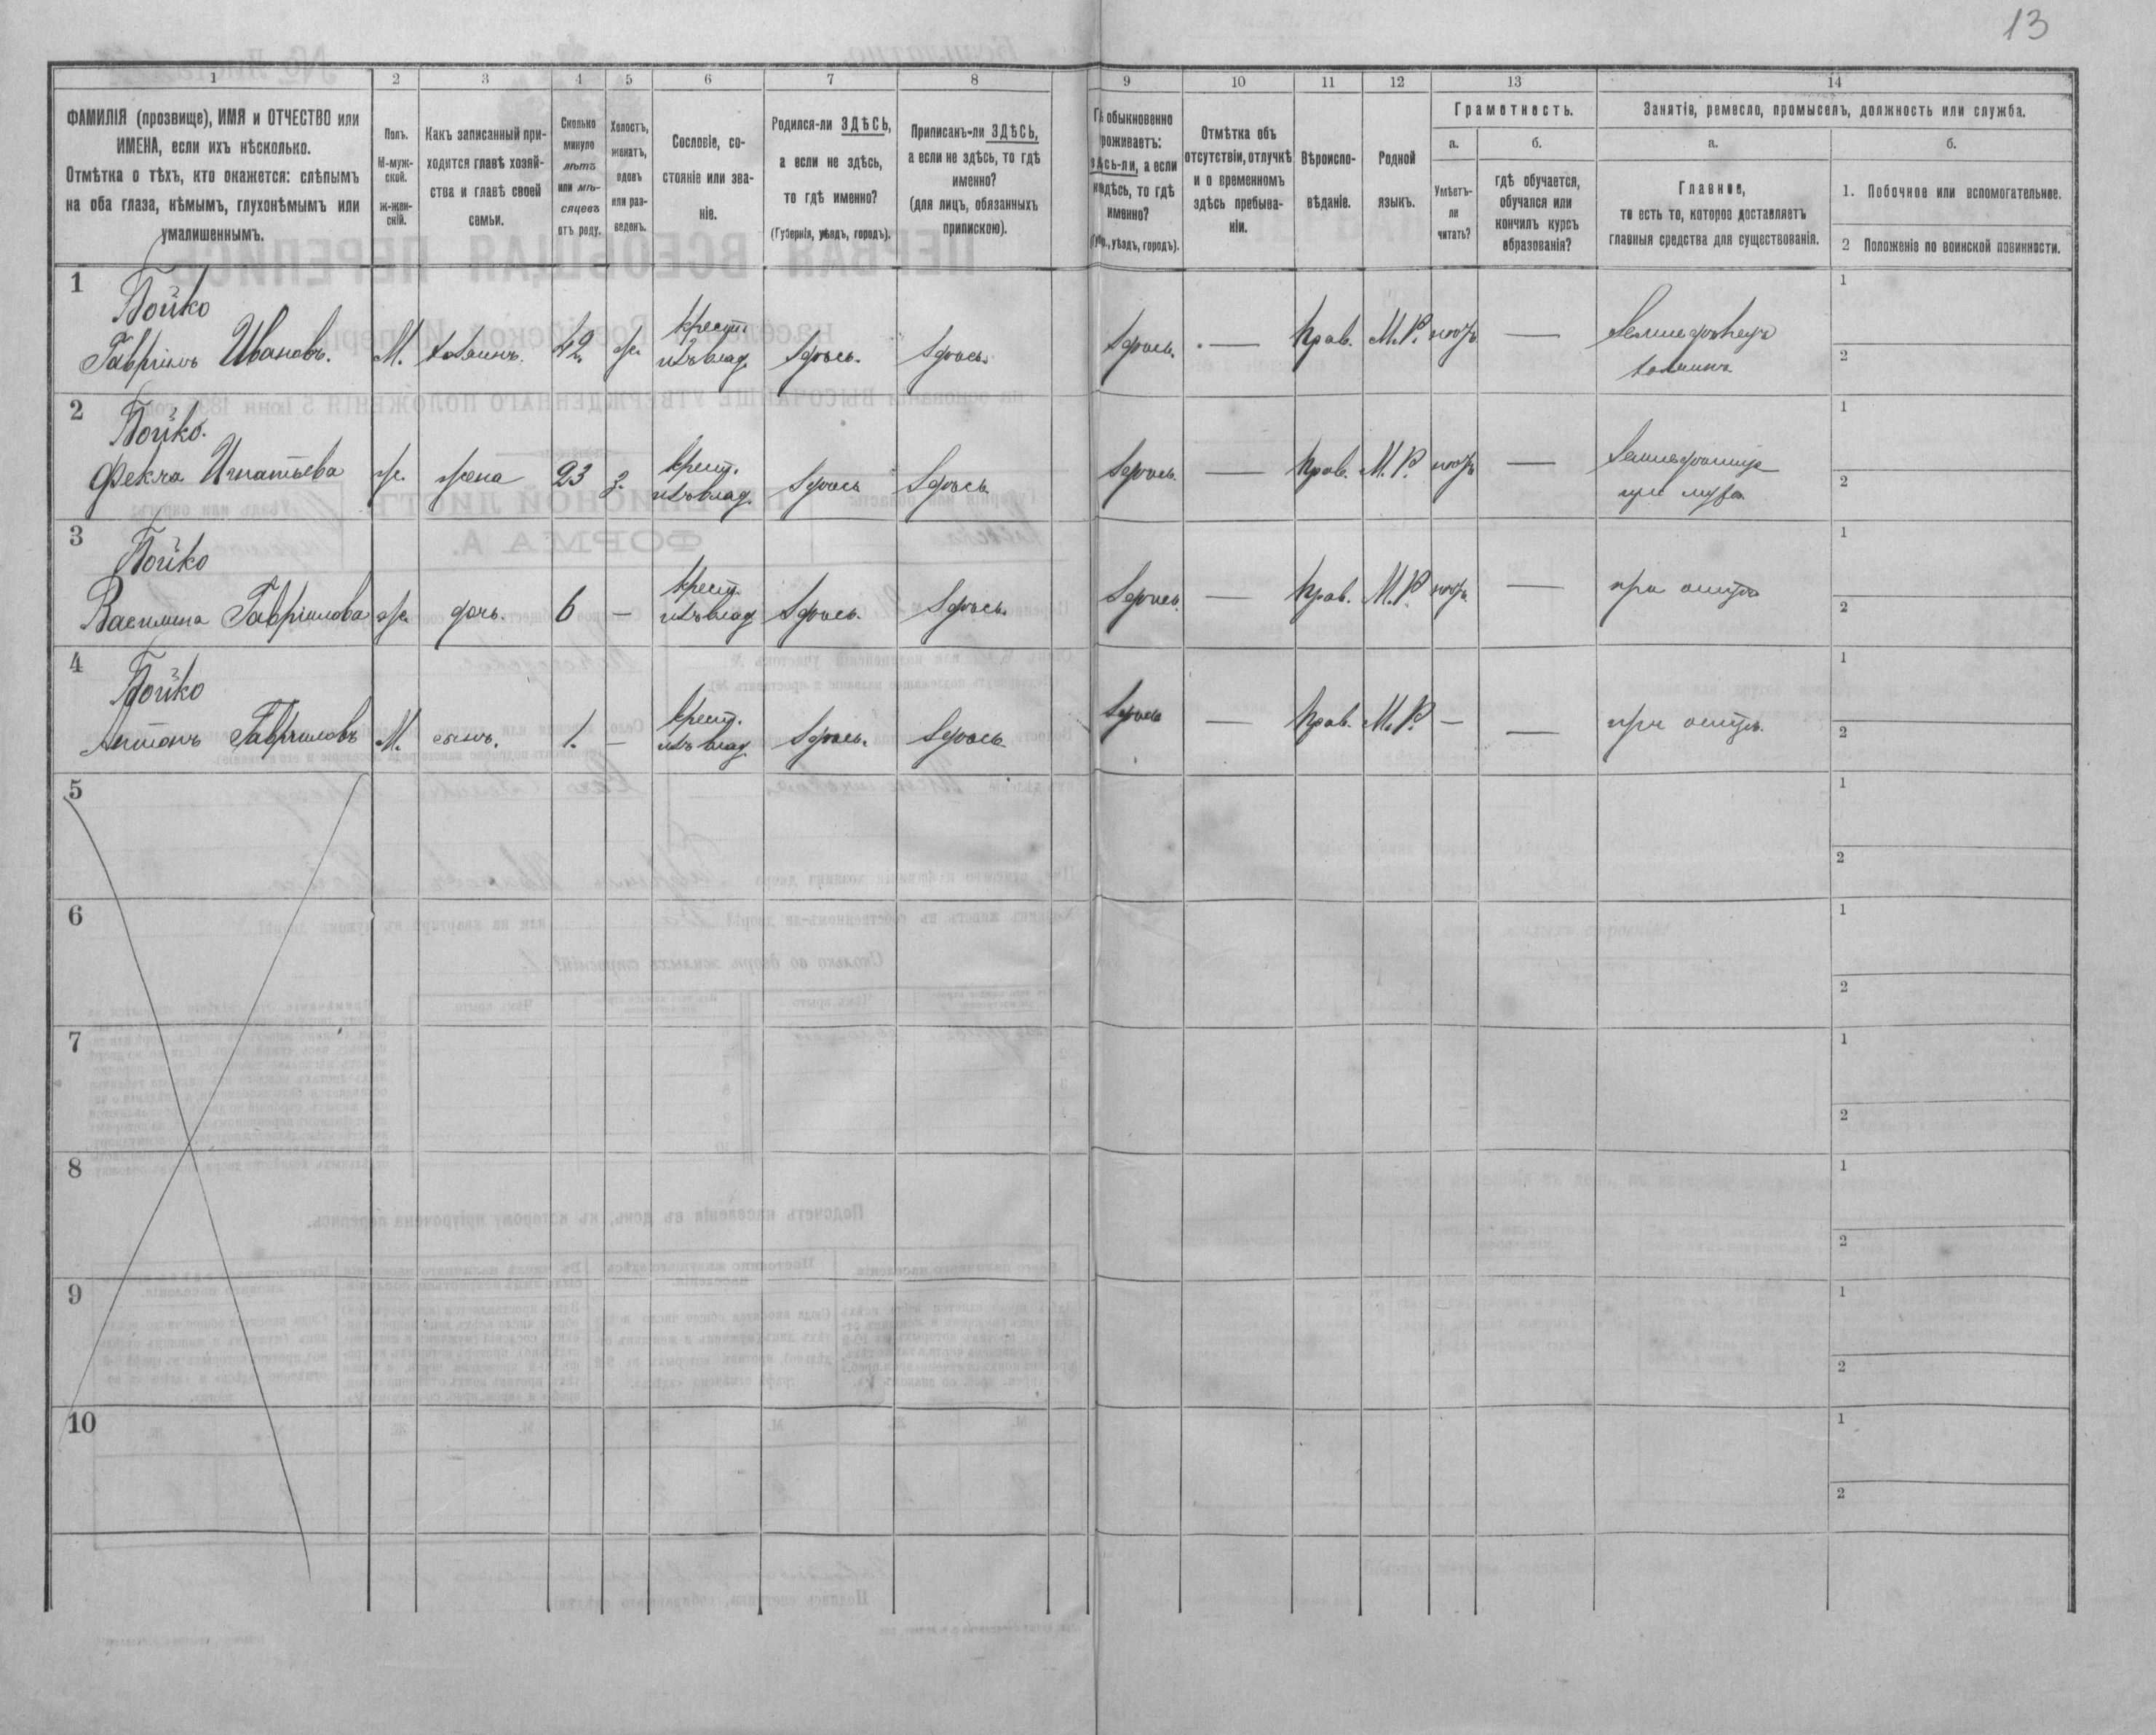 13
1 2 3 4 5 6 7 8 9 10 11 12 13 14
ФАМИЛІЯ (прозвище), ИМЯ и ОТЧЕСТВО или
ИМЕНА, если ихъ нѣсколько.
Отмѣтка о тѣхъ, кто окажется: слѣпымъ
на оба глаза, нѣмымъ, глухонѣмымъ или
умалишеннымъ.
Полъ.
М-муж-
ской.
ж-жен-
скій.
Какъ записанный при-
ходится главѣ хозяй-
ства и главѣ своей
семьи.
Сколько
минуло
лѣтъ
или мѣ-
сяцевъ
отъ роду.
Холостъ,
женатъ,
вдовъ
или раз-
веденъ.
Сословіе, со-
стояніе или зва-
ніе.
Родился-ли ЗДѢСЬ,
а если не здѣсь,
то гдѣ именно?
(Губернія, уѣздъ, городъ).
Приписанъ-ли ЗДѢСЬ,
а если не здѣсь, то гдѣ
именно?
(для лицъ, обязанныхъ
припискою).
обыкновенно
проживаетъ:
здѣсь-ли, а если
здѣсь, то гдѣ
именно?
уѣздъ, городъ).
Отмѣтка объ
отсутствіи, отлучкѣ
и о временномъ
здѣсь пребыва-
ніи.
Вѣроиспо-
вѣданіе.
Родной
языкъ.
Грамотность.
а.
Умѣетъ-
ли
читать?
б.
гдѣ обучается,
обучался или
кончилъ курсъ
образованія?
Занятія, ремесло, промыселъ, должность или служба.
а.
Главное,
то есть то, которое доставляетъ
главныя средства для существованія.
б.
1. Побочное или вспомогательное.
2 Положеніе по воинской повинности.
1
Бойко
Гавріилъ Ивановъ. М. хозяинъ. 42 ж. крест. изъ влад. Здѣсь. Здѣсь. Здѣсь. — Прав. М.Р. нѣтъ — Земледѣлецъ
хозяинъ
1
2
2
Бойко.
Фекла Игнатьева ж. жена 23 з. крест. изъ влад. Здѣсь Здѣсь. Здѣсь. — Прав. М.Р. нѣтъ —
при мужѣ
1
2
3
Бойко
Василина Гавріилова ж. дочь. 6 — крест. изъ влад. Здѣсь. Здѣсь. Здѣсь. — Прав. М.Р. нѣтъ — при отцѣ
1
2
4
Бойко
Антонъ Гавріиловъ М. сынъ. 1. — крест. изъ влад. Здѣсь. Здѣсь. Здѣсь — Прав. М.Р. — — при отцѣ.
1
2
5
1
2
6
1
2
7
1
2
8
1
2
9
1
2
10
1
2